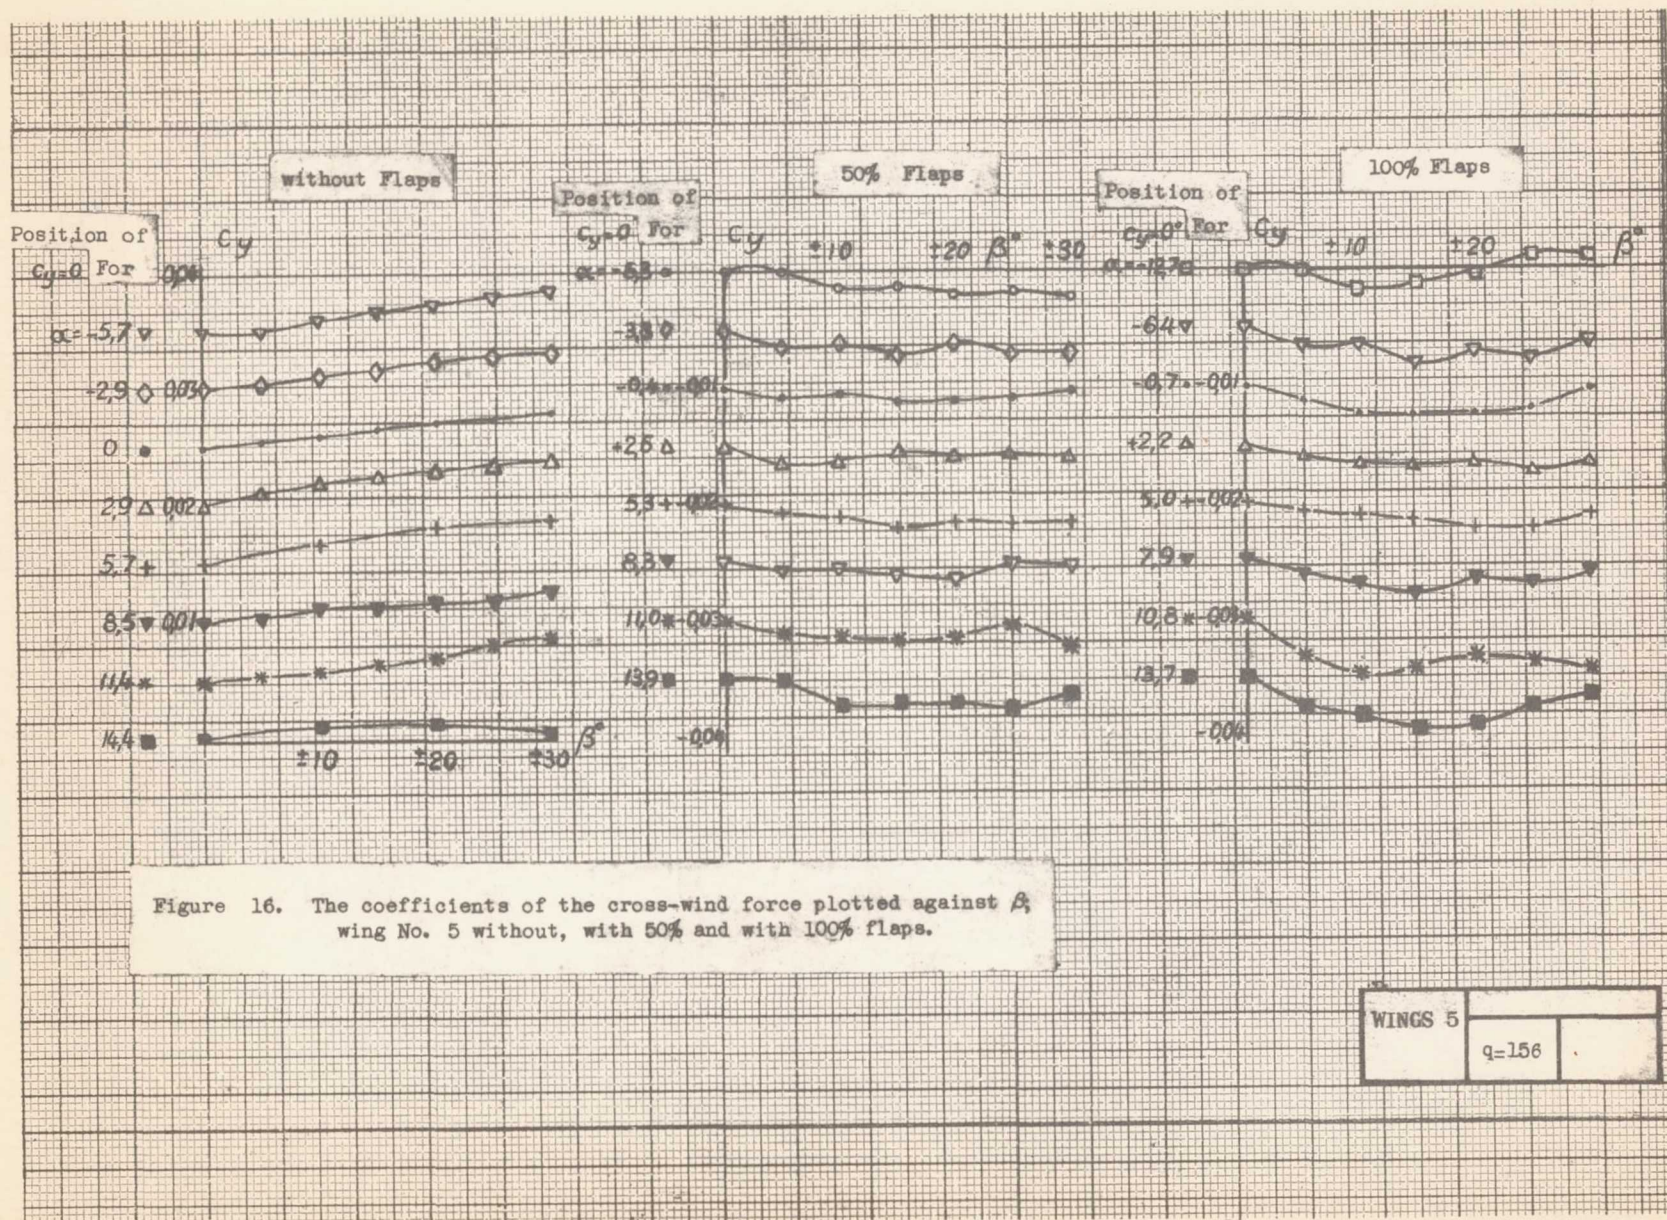 without Flaps
Position of
Cy=0 For
Cy
0,04
α=-5,7
-2,9 0,03
0
2,9 0,02
5,7
8,5 0,01
11,4
14,4
±10 ±20 ±30 β°
50% Flaps
Position of
Cy=0 For
Cy ±10 ±20 β° ±30
-3,3
-0,4 -0,01
+2,5
5,3 -0,02
8,3
11,0 -0,03
13,9
-0,04
100% Flaps
Position of
Cy=0° For
Cy ±10 ±20 β°
α=-12,7
-6,4
-0,7 -0,01
+2,2
5,0 -0,02
7,9
10,8 -0,03
13,7
-0,04
Figure 16. The coefficients of the cross-wind force plotted against β;
wing No. 5 without, with 50% and with 100% flaps.
WINGS 5
q=156